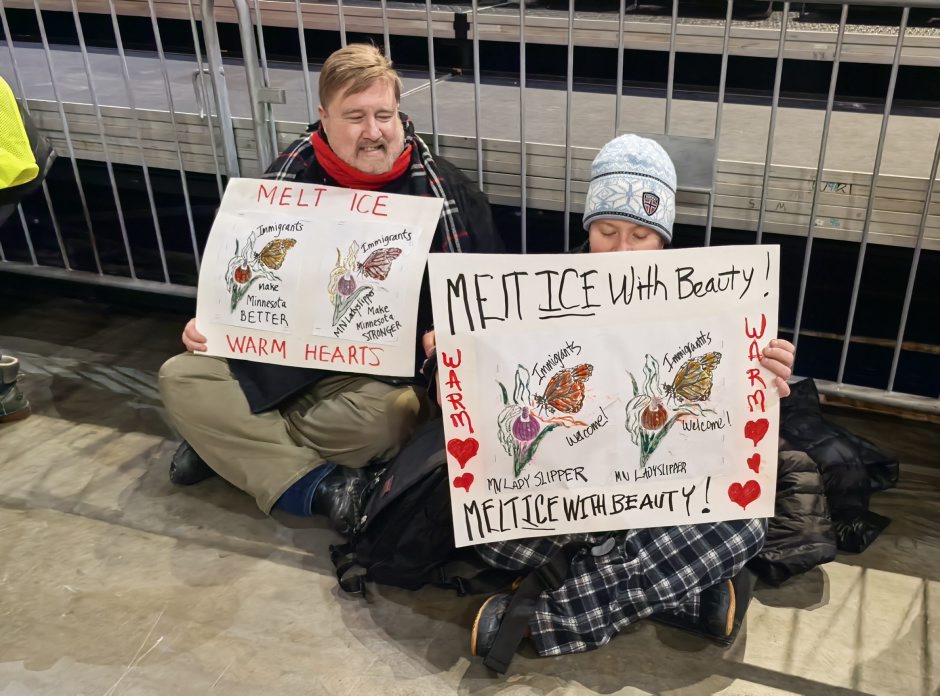 MELT ICE
Immigrants
make
Minnesota
BETTER
Immigrants
MN Ladyslipper
Make
Minnesota
STRONGER
WARM HEARTS
MElT ICE With Beauty!
WARM
Immigrants
Welcome!
MN LADY SLIPPER
Immigrants
Welcome!
MN LADYSLIPPER
WARM
MELT ICE WITH BEAUTY!